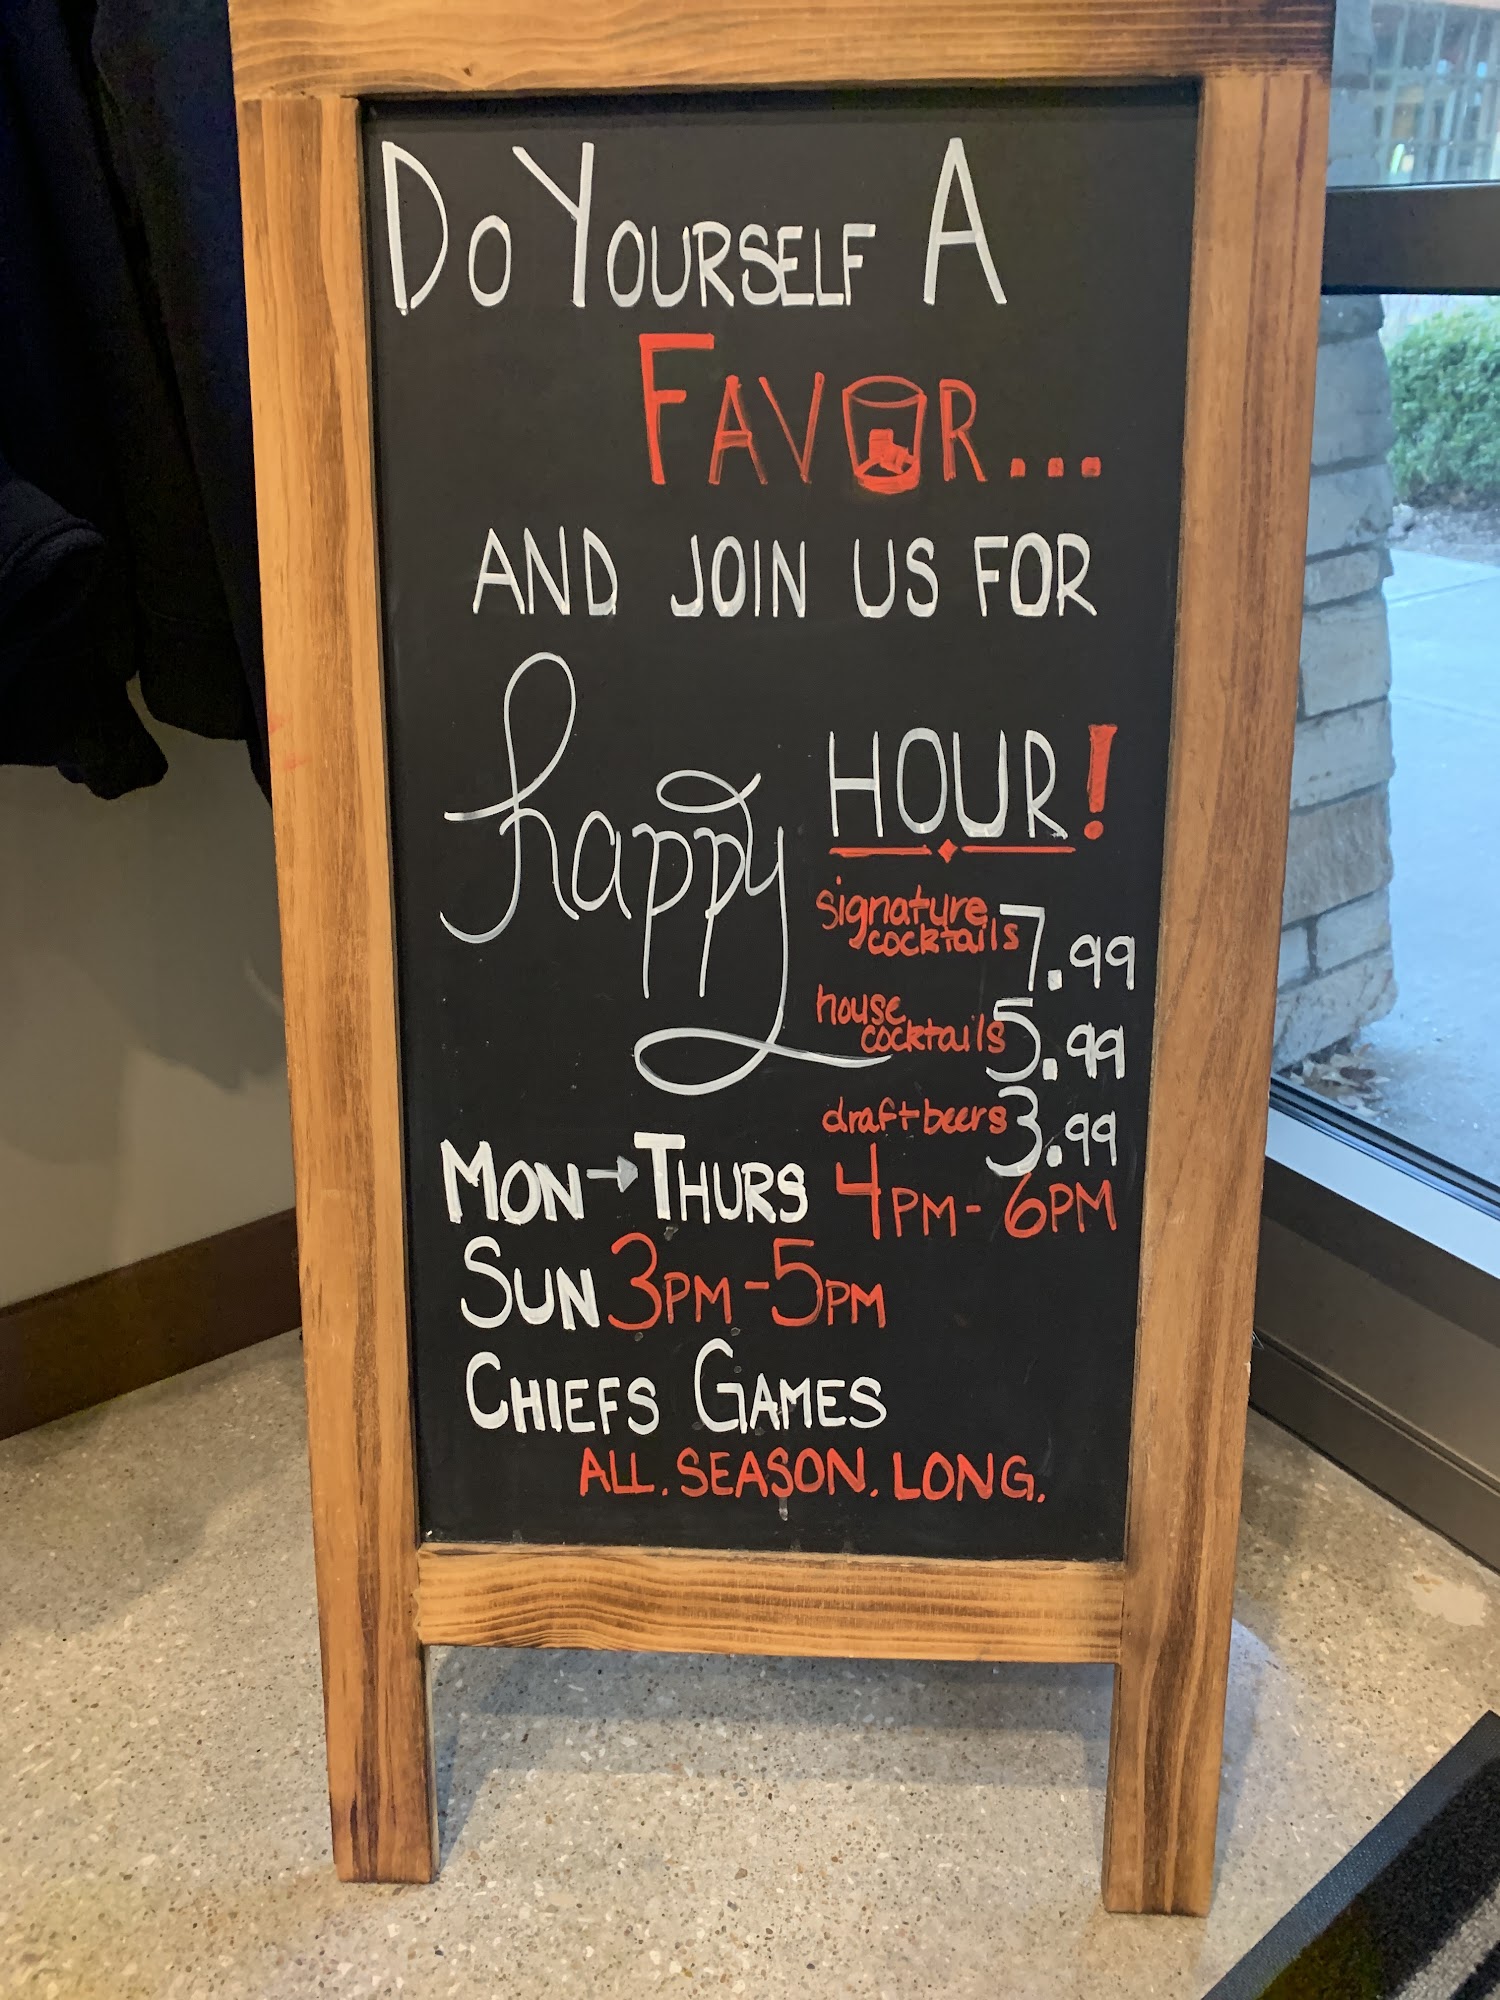 Do Yourself A
Favor...
AND JOIN US FOR
happy HOUR!
signature cocktails 7.99
house cocktails 5.99
draft beers 3.99
Mon→Thurs 4PM-6PM
Sun 3PM-5PM
Chiefs Games
ALL. SEASON. LONG.